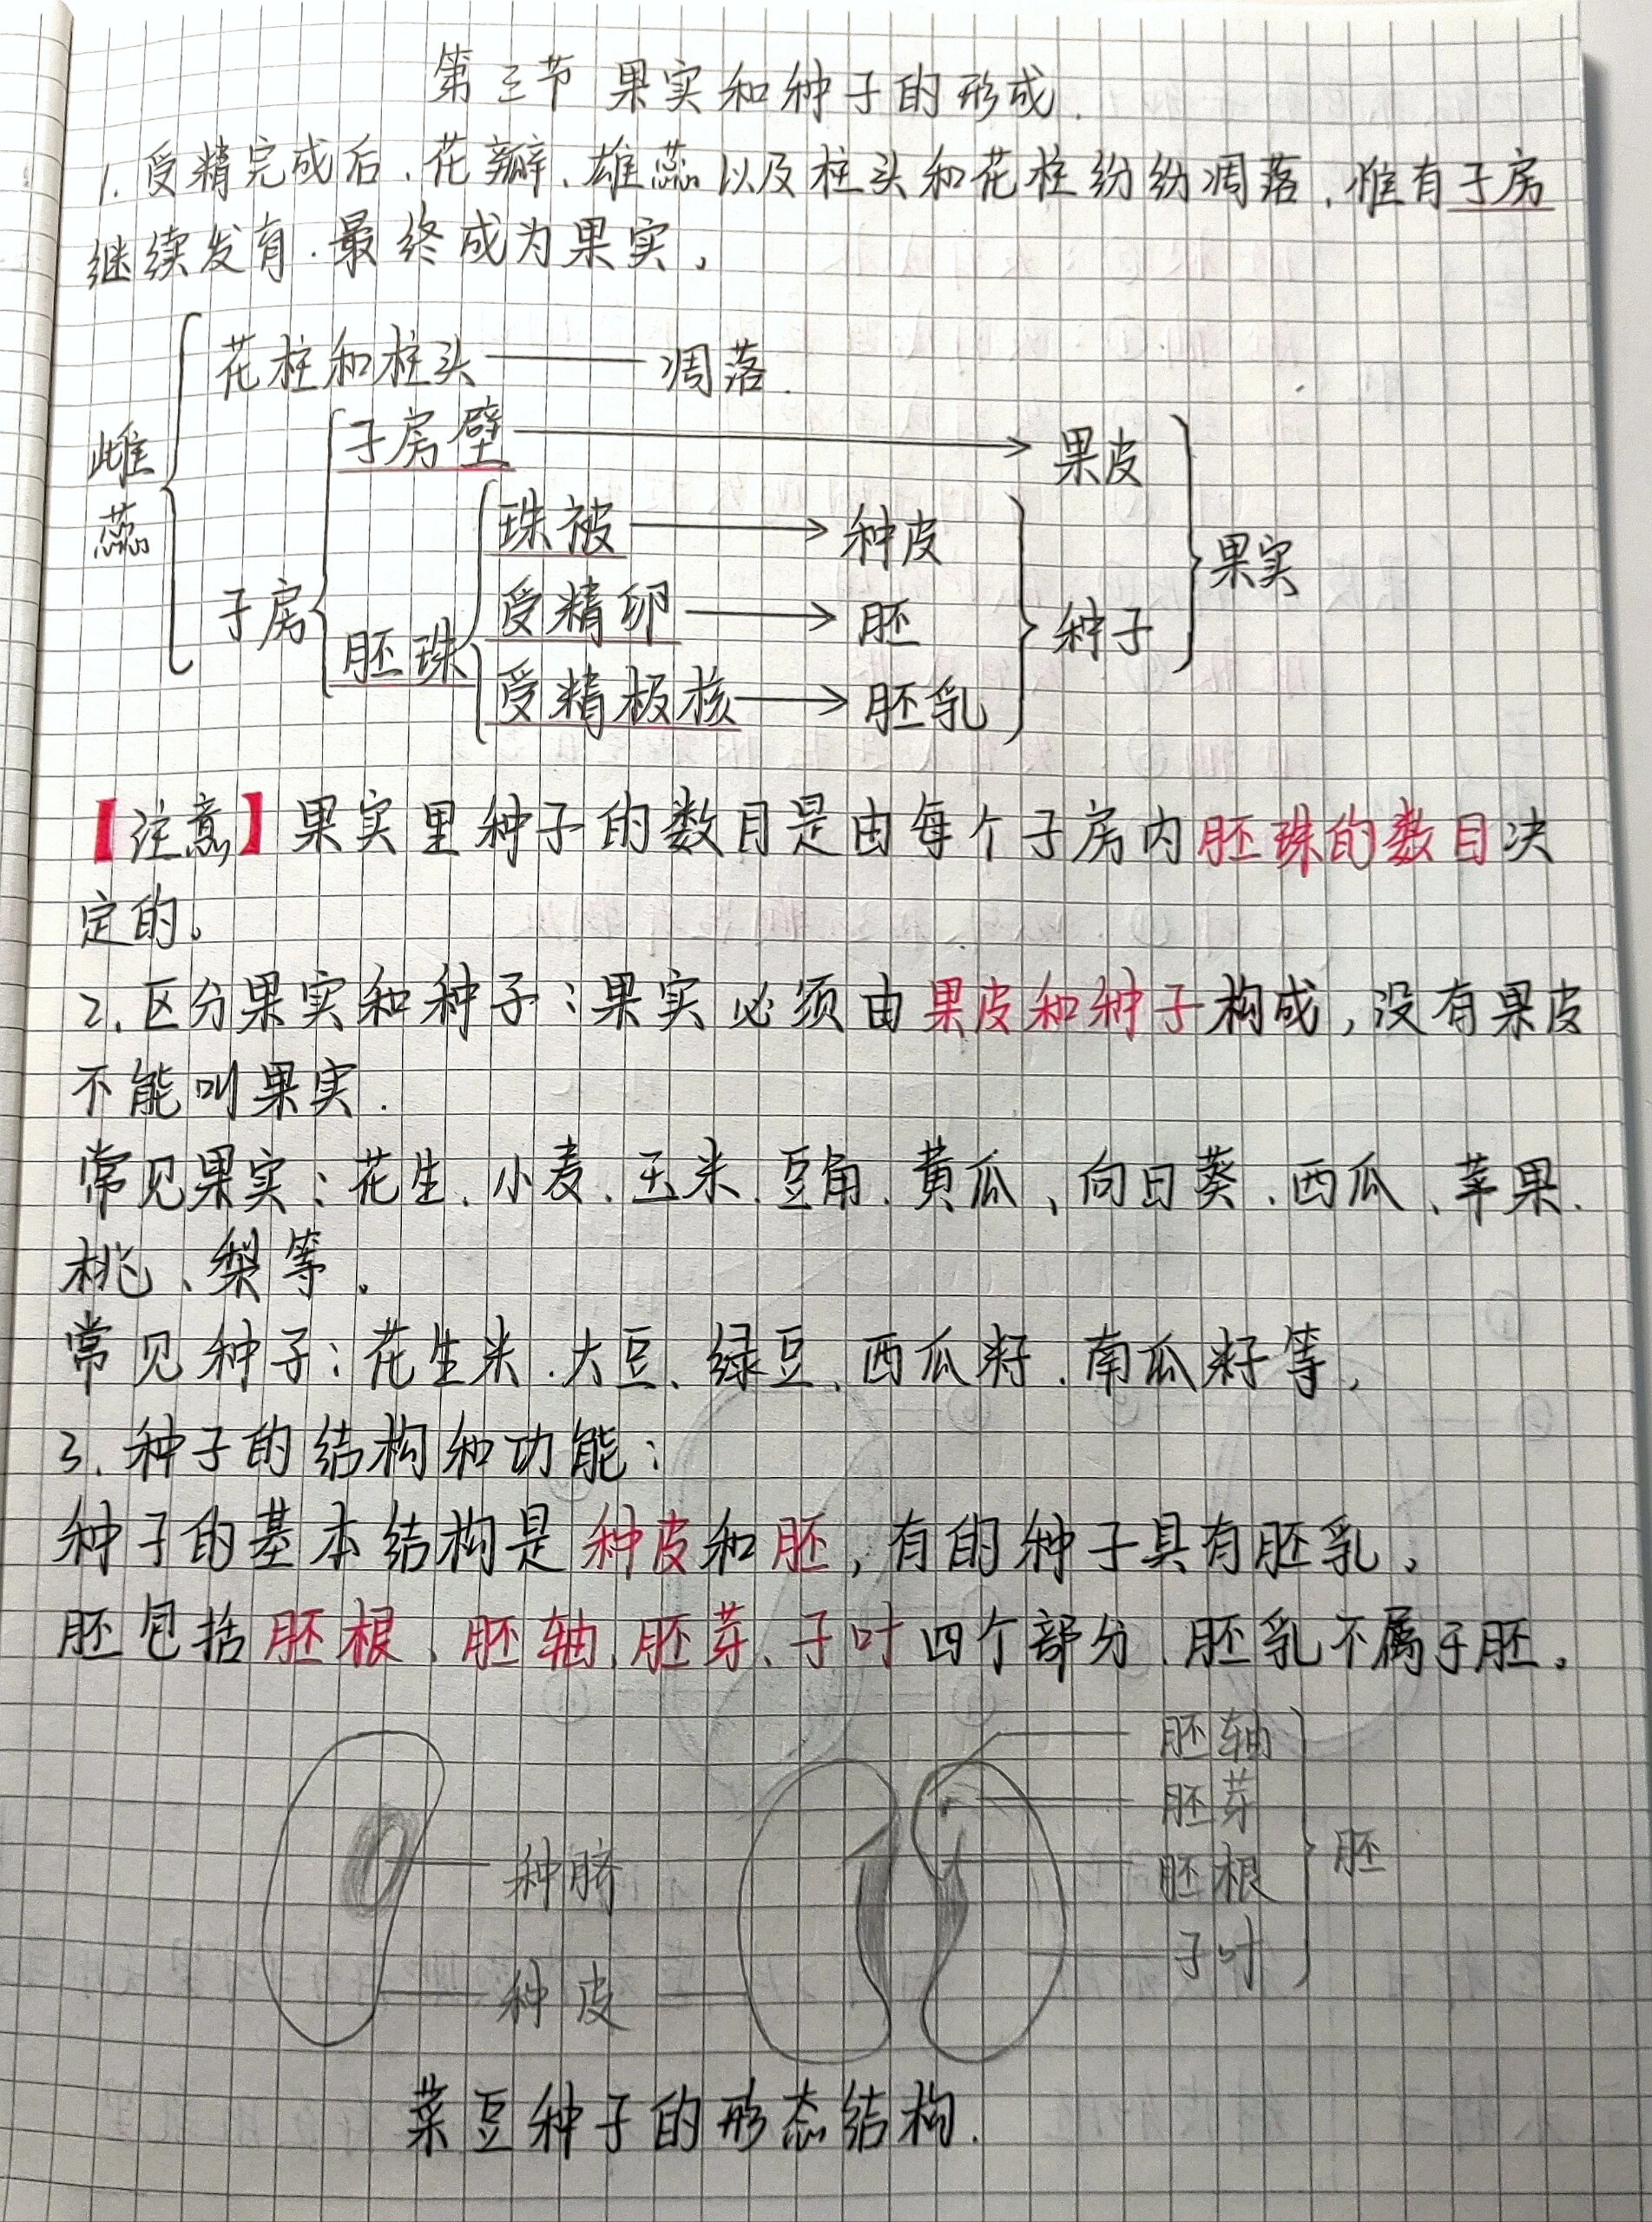 第三节 果实和种子的形成.
1.受精完成后、花瓣、雄蕊以及柱头和花柱纷纷凋落,惟有子房
继续发育.最终成为果实。
花柱和柱头——凋落.
雌蕊
子房壁 → 果皮
珠被 → 种皮
果实
子房
受精卵 → 胚
种子
胚珠
受精极核 → 胚乳
【注意】果实里种子的数目是由每个子房内胚珠的数目决
定的。
2.区分果实和种子:果实必须由果皮和种子构成,没有果皮
不能叫果实.
常见果实:花生、小麦、玉米、豆角、黄瓜、向日葵、西瓜、苹果、
桃、梨等。
常见种子:花生米、大豆、绿豆、西瓜籽、南瓜籽等,
3.种子的结构和功能:
种子的基本结构是种皮和胚,有的种子具有胚乳。
胚包括胚根、胚轴、胚芽、子叶四个部分、胚乳不属于胚。
胚轴
胚芽
种脐
胚根
胚
子叶
种皮
菜豆种子的形态结构.